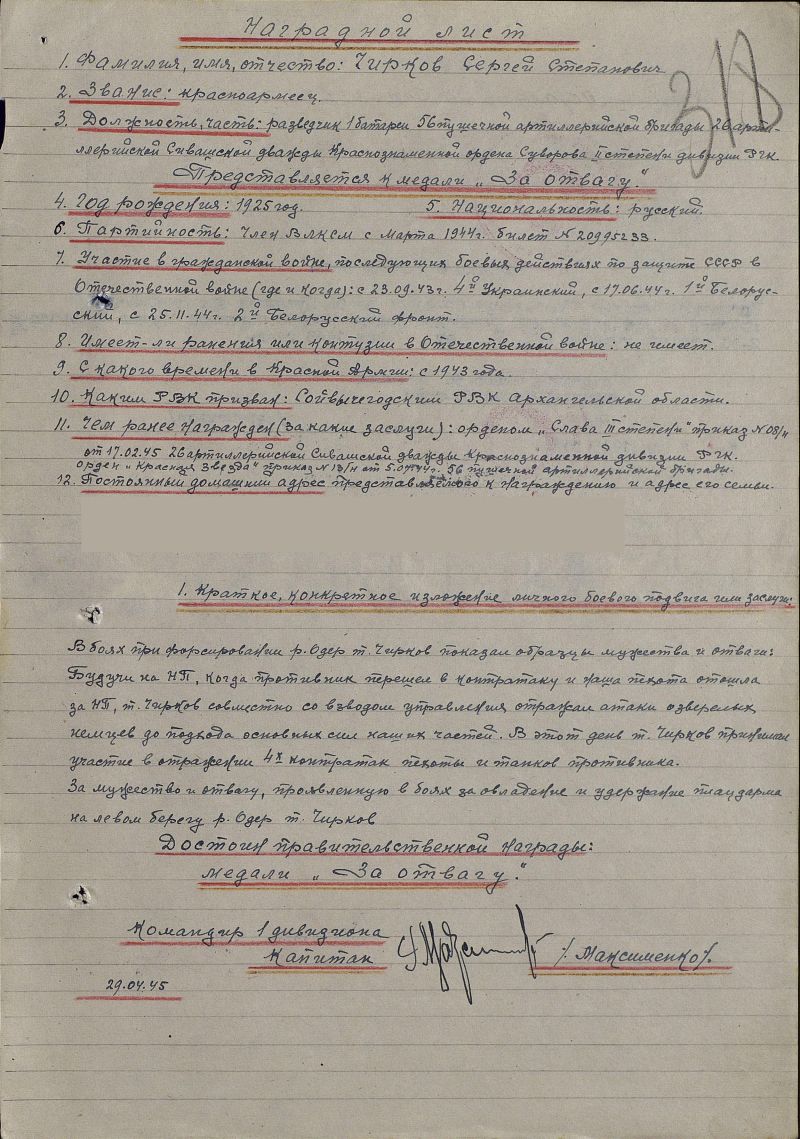 Наградной лист
1. Фамилия, имя, отчество: Чирков Сергей Степанович
2. Звание: красноармеец.
3. Должность, часть: разведчик 1 батареи 56 пушечной артиллерийской бригады 26 арти-
ллерийской Сивашской дважды Краснознаменной ордена Суворова II степени дивизии РГК.
Представляется к медали „За отвагу".
4. Год рождения: 1925 год. 5. Национальность: русский.
6. Партийность: член ВЛКСМ с марта 1944г. билет N 20995233.
7. Участие в гражданской войне, последующих боевых действиях по защите СССР в
Отечественной войне (где и когда): с 23.09.43г. 4й Украинский, с 17.06.44г. 1й Белорус-
ский, с 25.11.44г. 2й Белорусский фронт.
8. Имеет-ли ранения или контузии в Отечественной войне: не имеет.
9. С какого времени в Красной Армии: с 1943 года.
10. Каким РВК призван: Сойвычегодским РВК Архангельской области.
11. Чем ранее награжден (за какие заслуги): орденом „Слава III степени" приказ N 08/н
от 17.02.45 26 артиллерийской Сивашской дважды Краснознаменной дивизии РГК.
орден „Красная Звезда" приказ N 13/н от 56 пушечной артиллерийской бригады.
12. Постоянный домашний адрес представляемого к награждению и адрес его семьи.
1. Краткое, конкретное изложение личного боевого подвига или заслуги:
В боях при форсировании р. Одер т. Чирков показал образцы мужества и отваги:
Будучи на НП, когда противник перешел в контратаку и наша пехота отошла
за НП, т. Чирков совместно со взводом управления отражал атаки озверелых
немцев до подхода основных сил наших частей. В этот день т. Чирков принимал
участие в отражении 4х контратак пехоты и танков противника.
За мужество и отвагу, проявленную в боях за овладение и удержание плацдарма
на левом берегу р. Одер т. Чирков
Достоин правительственной награды:
медали „За отвагу".
Командир 1 дивизиона
капитан /Максименко/.
29.04.45